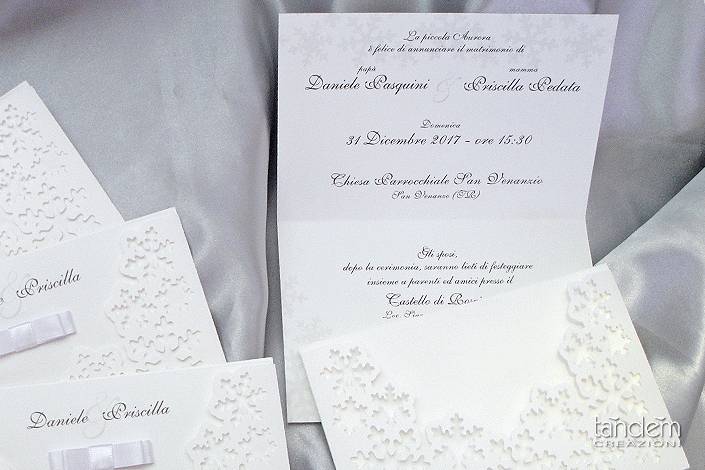 La piccola Aurora
è felice di annunciare il matrimonio di
papà mamma
Daniele Pasquini & Priscilla Pedata
Domenica
31 Dicembre 2017 - ore 15:30
Chiesa Parrocchiale San Venanzio
San Venanzo (TR)
Gli sposi,
dopo la cerimonia, saranno lieti di festeggiare
insieme a parenti ed amici presso il
Castello di
Loc.
& Priscilla
Daniele & Priscilla
tandem
CREAZIONI